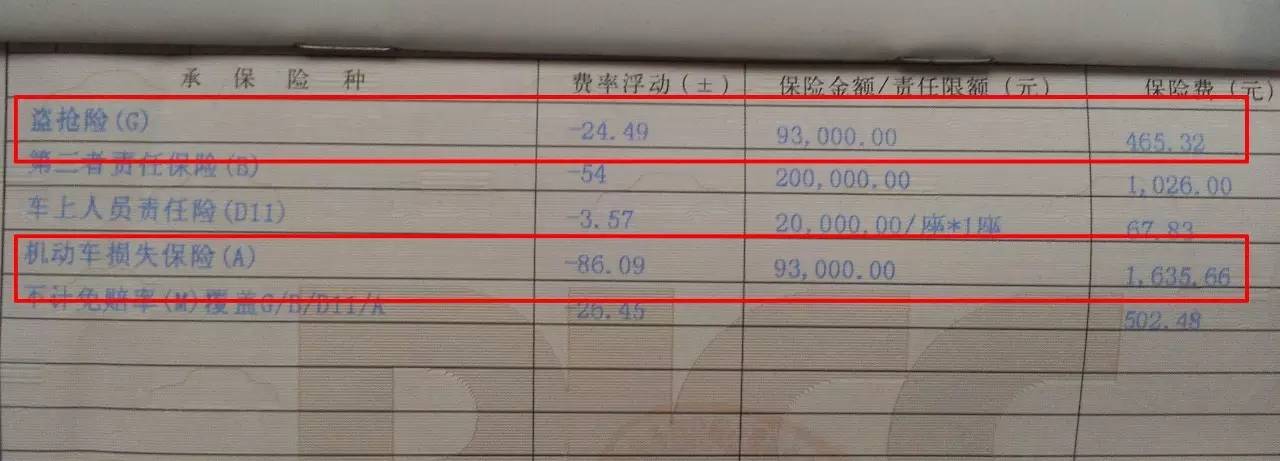 承保险种 费率浮动(±) 保险金额/责任限额(元) 保险费(元)
盗抢险(G) -24.49 93,000.00 465.32
第三者责任保险(B) -54 200,000.00 1,026.00
车上人员责任险(D11) -3.57 20,000.00/座*1座 67.83
机动车损失保险(A) -86.09 93,000.00 1,635.66
不计免赔率(M)覆盖G/B/D11/A -26.45 502.48